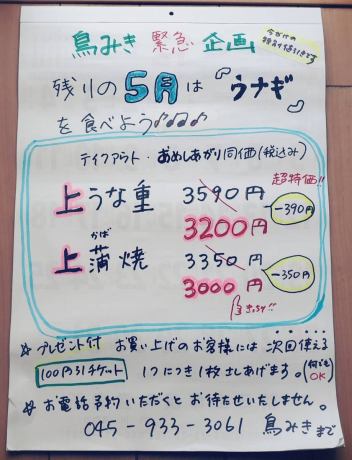 鳥みき 緊急 企画
今だけの
特別値引きです
残りの5月は『ウナギ』
を食べよう♪♪♪♪
テイクアウト・おめしあがり同価(税込み)
超特価!!
上うな重 3590円 -390円
3200円
かば
上蒲焼 3350円 -350円
3000円
☆ プレゼント付 お買い上げのお客様には次回使える
100円引チケット 1つにつき1枚さしあげます。(何でもOK)
☆ お電話予約いただくとお待たせいたしません。
045-933-3061 鳥みきまで